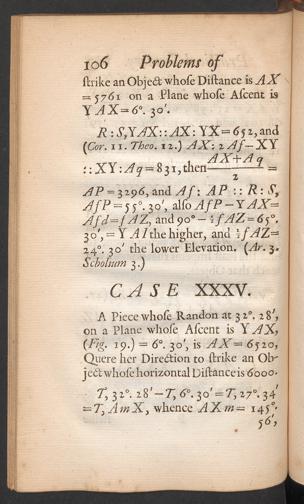 106 Problems of
ſtrike an Object whoſe Diſtance is AX
= 5761 on a Plane whoſe Aſcent is
YAX = 6°. 30′.
R : S, YAX :: AX : YX = 652, and
(Cor. 11. Theo. 12.) AX : 2 Aſ − XY
:: XY : Aq = 831, then (AX + Aq)/2 =
AP = 3296, and Aſ : AP :: R : S,
AſP = 55°. 30′, alſo AſP − YAX =
Aſd = ſAZ, and 90° − ½ ſAZ = 65°.
30′, = YAI the higher, and ½ ſAZ =
24°. 30′ the lower Elevation. (Ar. 3.
Scholium 3.)
CASE XXXV.
A Piece whoſe Randon at 32°. 28′,
on a Plane whoſe Aſcent is YAX,
(Fig. 19.) = 6°. 30′, is AX = 6520,
Quere her Direction to ſtrike an Ob-
ject whoſe horizontal Diſtance is 6000.
T, 32°. 28′ − T, 6°. 30′ = T, 27°. 34′
= T, AmX, whence AXm = 145°.
56′,